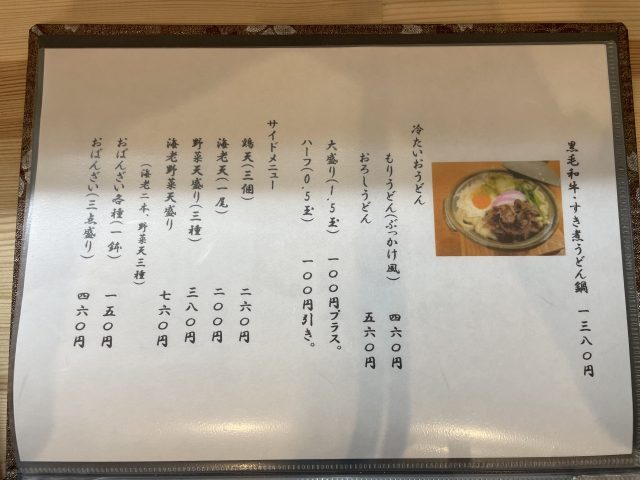 黒毛和牛・すき煮うどん鍋 一三八〇円
冷たいおうどん
もりうどん(ぶっかけ風) 四六〇円
おろしうどん 五六〇円
大盛り(1.5玉) 一〇〇円プラス。
ハーフ(0.5玉) 一〇〇円引き。
サイドメニュー
鶏天(三個) 二六〇円
海老天(一尾) 二〇〇円
野菜天盛り(三種) 三八〇円
海老野菜天盛り 七六〇円
(海老二本、野菜天三種)
おばんざい各種(一鉢) 一五〇円
おばんざい(三点盛り) 四六〇円